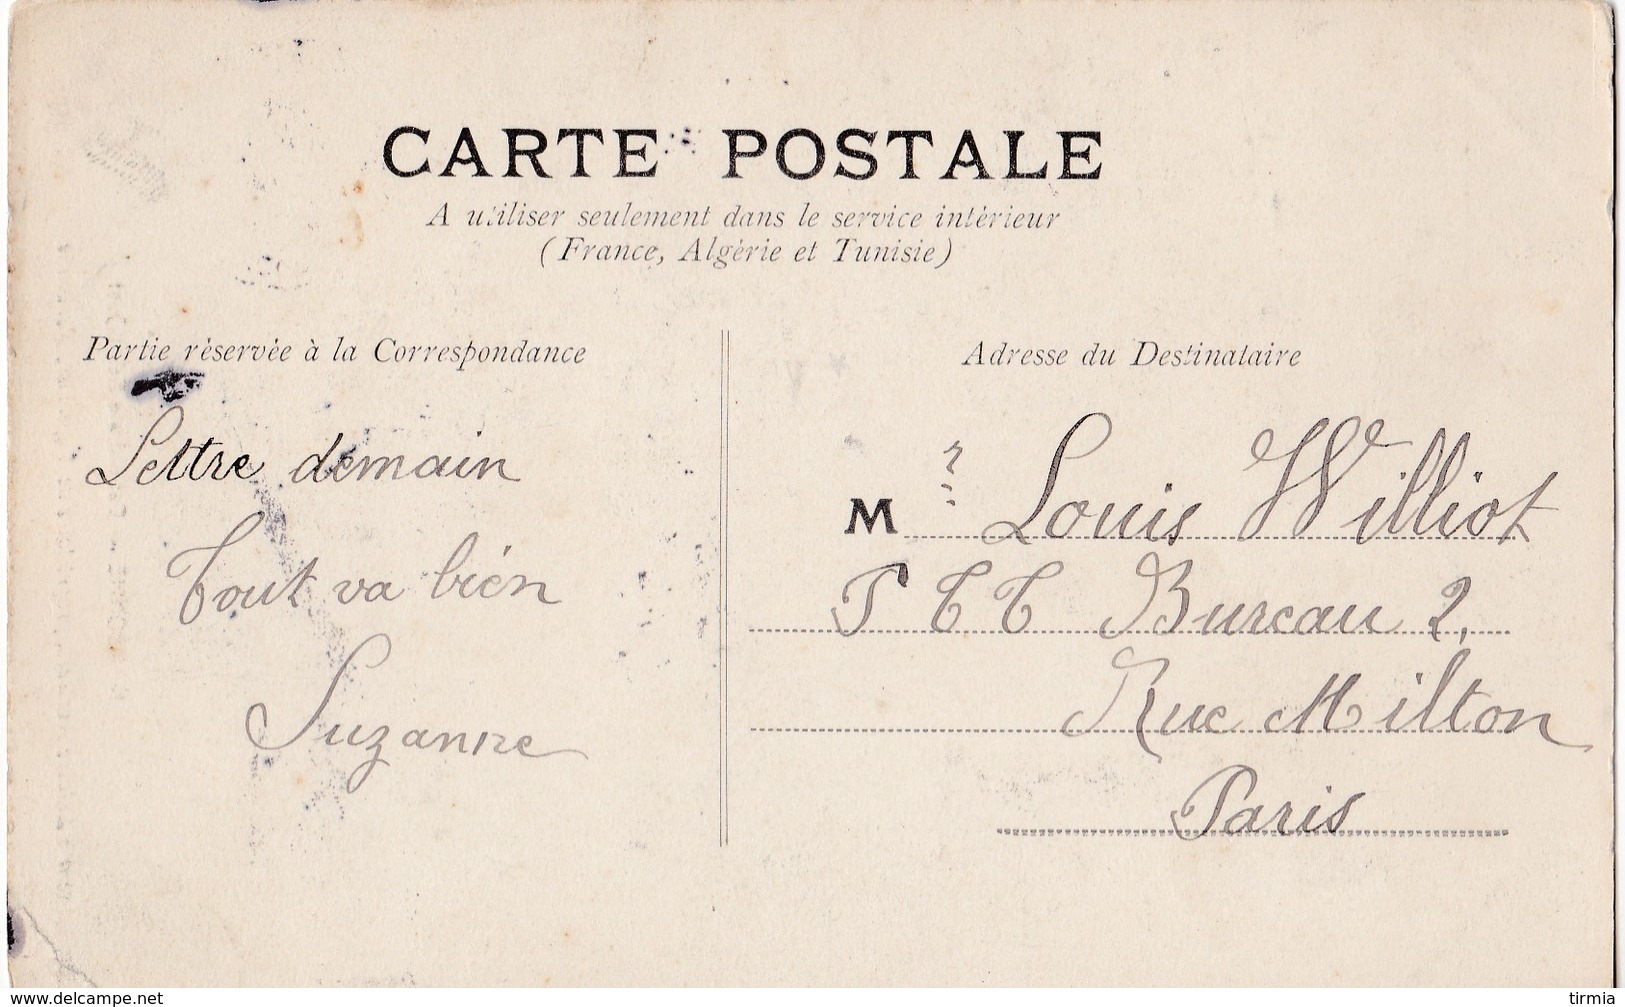 CARTE POSTALE
A utiliser seulement dans le service intérieur
(France, Algérie et Tunisie)
Partie réservée à la Correspondance
Lettre demain
Tout va bien
Suzanne
Adresse du Destinataire
Mr Louis Williot
P T T Bureau 2,
Rue Milton
Paris
www.delcampe.net
tirmia